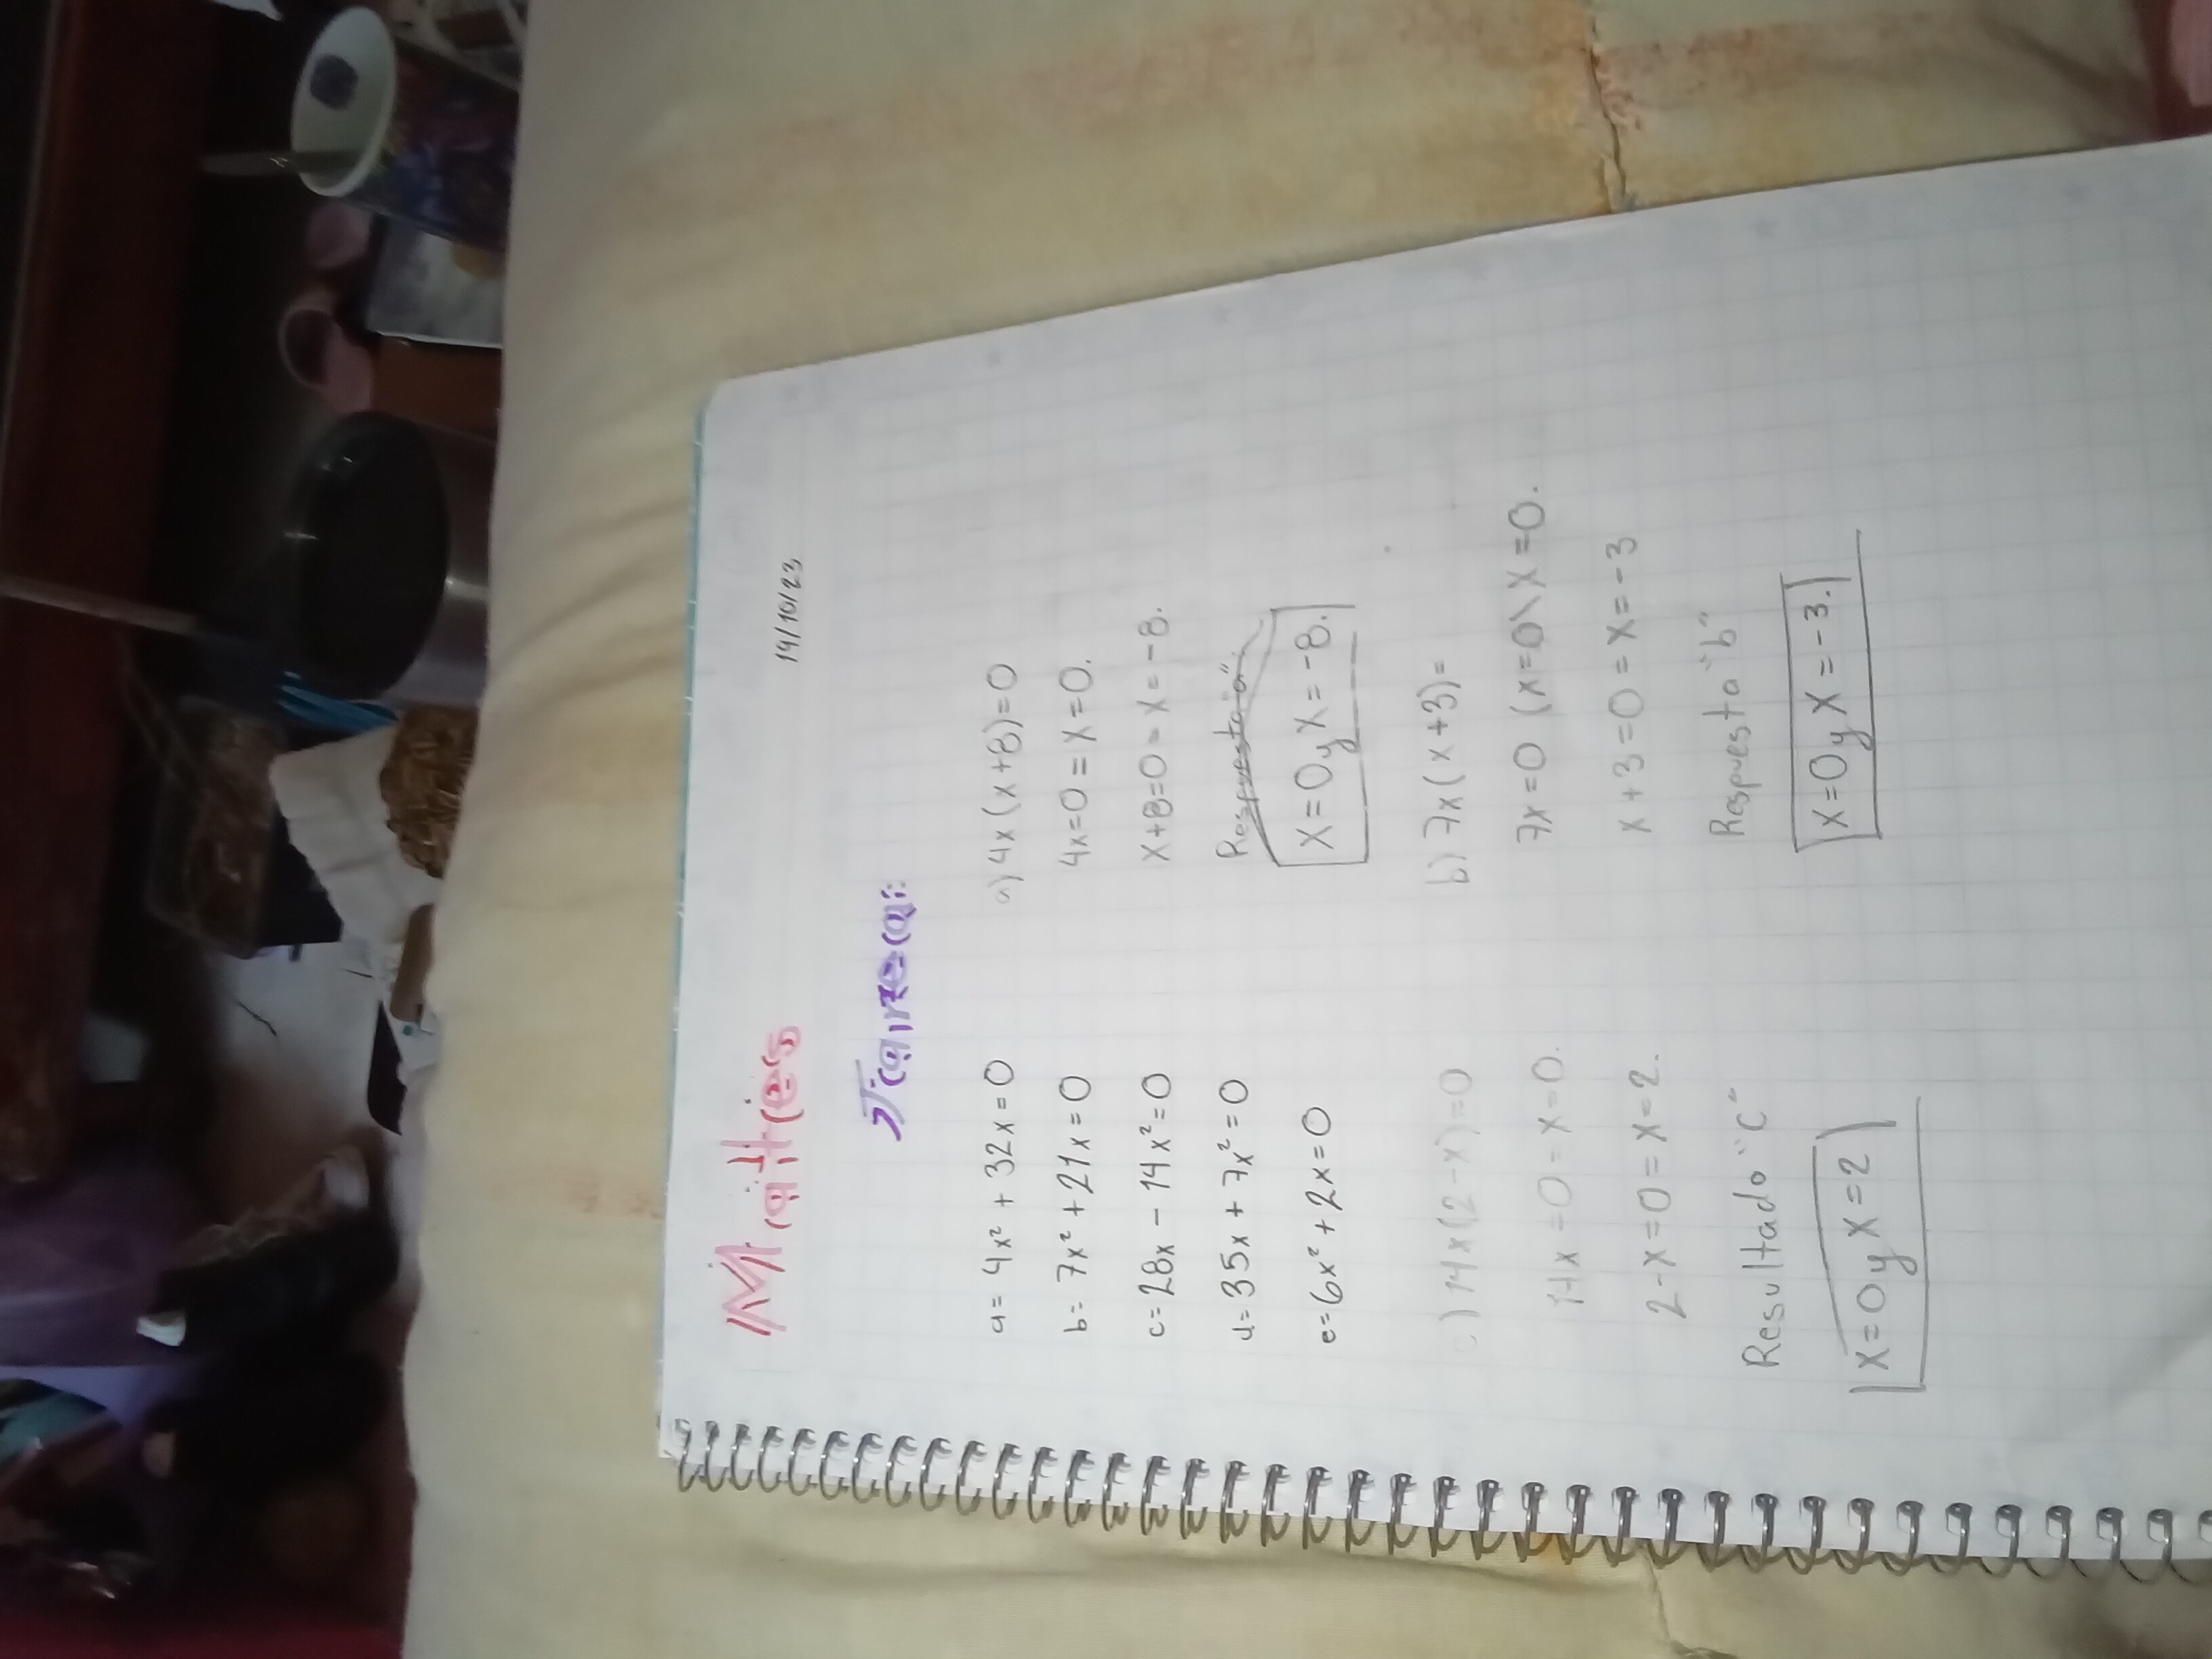 Mates
14/10/23
Tarea:
a= 4x² + 32x = 0
b= 7x² + 21x = 0
c= 28x - 14x² = 0
d= 35x + 7x² = 0
e= 6x² + 2x = 0
a) 4x (x+8)=0
4x=0 = x=0.
x+8=0 = x=-8.
Respuesta "a"
x=0 y x=-8.
b) 7x (x+3)=
7x=0 (x=0\ x=0.
x+3=0 = x=-3
Respuesta "b"
x=0 y x=-3.
c) 14x (2-x)=0
14x=0 = x=0.
2-x=0 = x=2.
Resultado "c"
x=0 y x=2